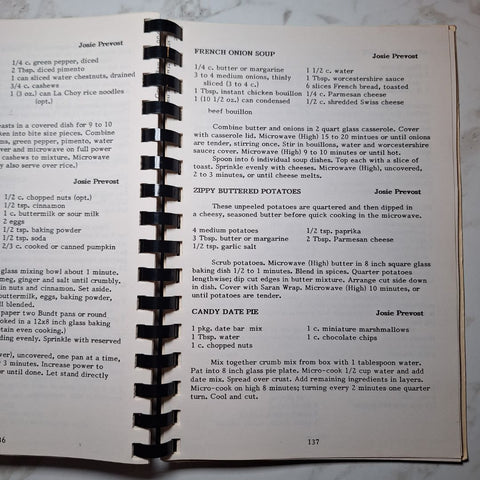 Josie Prevost
1/4 c. green pepper, diced
2 Tbsp. diced pimento
1 can sliced water chestnuts, drained
3/4 c. cashews
1 (3 oz.) can La Choy rice noodles
(opt.)
easts in a covered dish for 9 to 10
ken into bite size pieces. Combine
ms, green pepper, pimento, water
over and microwave on full power
cashews to mixture. Microwave
ly also serve over rice.)
Josie Prevost
1/2 c. chopped nuts (opt.)
1/2 tsp. cinnamon
1 c. buttermilk or sour milk
2 eggs
1/2 tsp. baking powder
1/2 tsp. soda
2/3 c. cooked or canned pumpkin
glass mixing bowl about 1 minute.
meg, ginger and salt until crumbly.
in nuts and cinnamon. Set aside.
buttermilk, eggs, baking powder,
ll blended.
paper two Bundt pans or round
ooked in a 12x8 inch glass baking
tain even cooking.)
ding evenly. Sprinkle with reserved
ver), uncovered, one pan at a time,
3 minutes. Increase power to
or until done. Let stand directly
36
FRENCH ONION SOUP Josie Prevost
1/4 c. butter or margarine 1 1/2 c. water
3 to 4 medium onions, thinly 1 Tbsp. worcestershire sauce
sliced (3 to 4 c.) 6 slices French bread, toasted
1 Tbsp. instant chicken bouillon 1/4 c. Parmesan cheese
1 (10 1/2 oz.) can condensed 1/2 c. shredded Swiss cheese
beef bouillon
Combine butter and onions in 2 quart glass casserole. Cover
with casserole lid. Microwave (High) 15 to 20 mintues or until onions
are tender, stirring once. Stir in bouillons, water and worcestershire
sauce; cover. Microwave (High) 9 to 10 minutes or until hot.
Spoon into 6 individual soup dishes. Top each with a slice of
toast. Sprinkle evenly with cheeses. Microwave (High), uncovered,
2 to 3 minutes, or until cheese melts.
ZIPPY BUTTERED POTATOES Josie Prevost
These unpeeled potatoes are quartered and then dipped in
a cheesy, seasoned butter before quick cooking in the microwave.
4 medium potatoes 1/2 tsp. paprika
3 Tbsp. butter or margarine 2 Tbsp. Parmesan cheese
1/2 tsp. garlic salt
Scrub potatoes. Microwave (High) butter in 8 inch square glass
baking dish 1/2 to 1 minutes. Blend in spices. Quarter potatoes
lengthwise; dip cut edges in butter mixture. Arrange cut side down
in dish. Cover with Saran Wrap. Microwave (High) 10 minutes, or
until potatoes are tender.
CANDY DATE PIE Josie Prevost
1 pkg. date bar mix 1 c. miniature marshmallows
1 Tbsp. water 1 c. chocolate chips
1 c. chopped nuts
Mix together crumb mix from box with 1 tablespoon water.
Pat into 8 inch glass pie plate. Micro-cook 1/2 cup water and add
date mix. Spread over crust. Add remaining ingredients in layers.
Micro-cook on high 8 minutes; turning every 2 minutes one quarter
turn. Cool and cut.
137